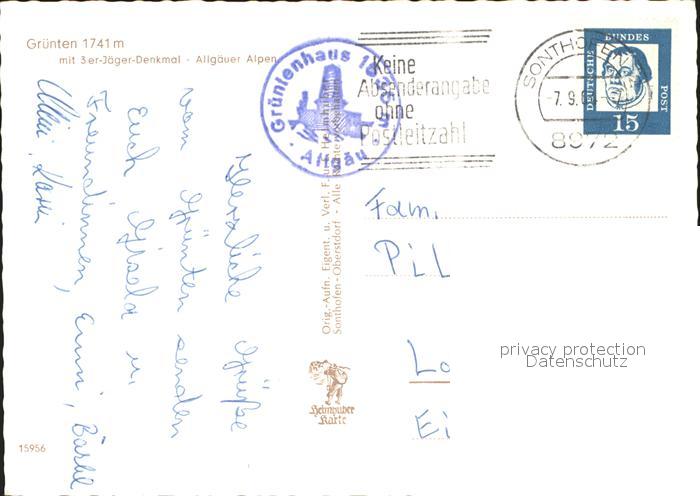 Grünten 1741 m
mit 3er-Jäger-Denkmal · Allgäuer Alpen
Herzliche Grüße
vom Grünten senden
Euch Gisela u.
Freundinnen, Emmi, Bärbel
Grüntenhaus
· Allgäu ·
Keine
Absenderangabe
ohne
Postleitzahl
SONTHOFEN
-7.9.6
8972
DEUTSCHE BUNDES POST
15
Orig.-Aufn. Eigent. u. Verl. F. u. H. Heimhuber
Sonthofen-Oberstdorf - Alle Rechte vorbehalten
Heimhuber
Karte
Fam.
Pil
Lo
Ei
privacy protection
Datenschutz
15956